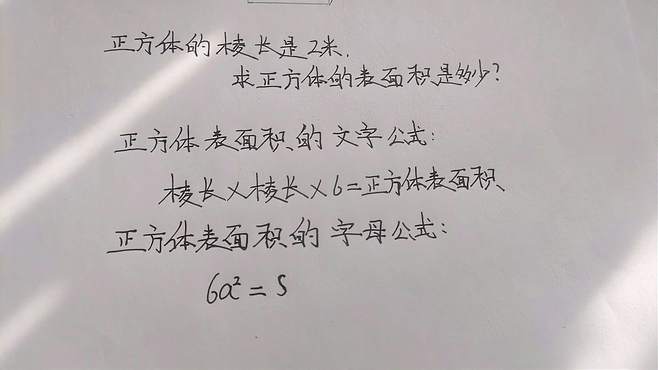 正方体的棱长是2米.
求正方体的表面积是多少?
正方体表面积的文字公式:
棱长×棱长×6=正方体表面积
正方体表面积的字母公式:
6a²=S